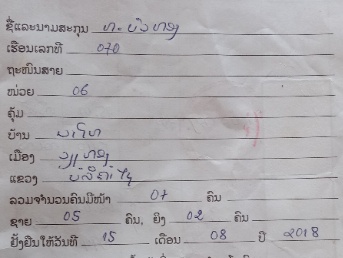 ຊື່ແລະນາມສະກຸນ
ເຮືອນເລກທີ 070
ຖະໜົນສາຍ
ໜ່ວຍ 06
ຄຸ້ມ
ບ້ານ
ເມືອງ
ແຂວງ ບໍລິຄຳໄຊ
ລວມຈຳນວນຄົນມີໜ້າ 07 ຄົນ
ຊາຍ 05 ຄົນ, ຍິງ 02 ຄົນ
ຢັ້ງຢືນໃຫ້ວັນທີ 15 ເດືອນ 08 ປີ 2018